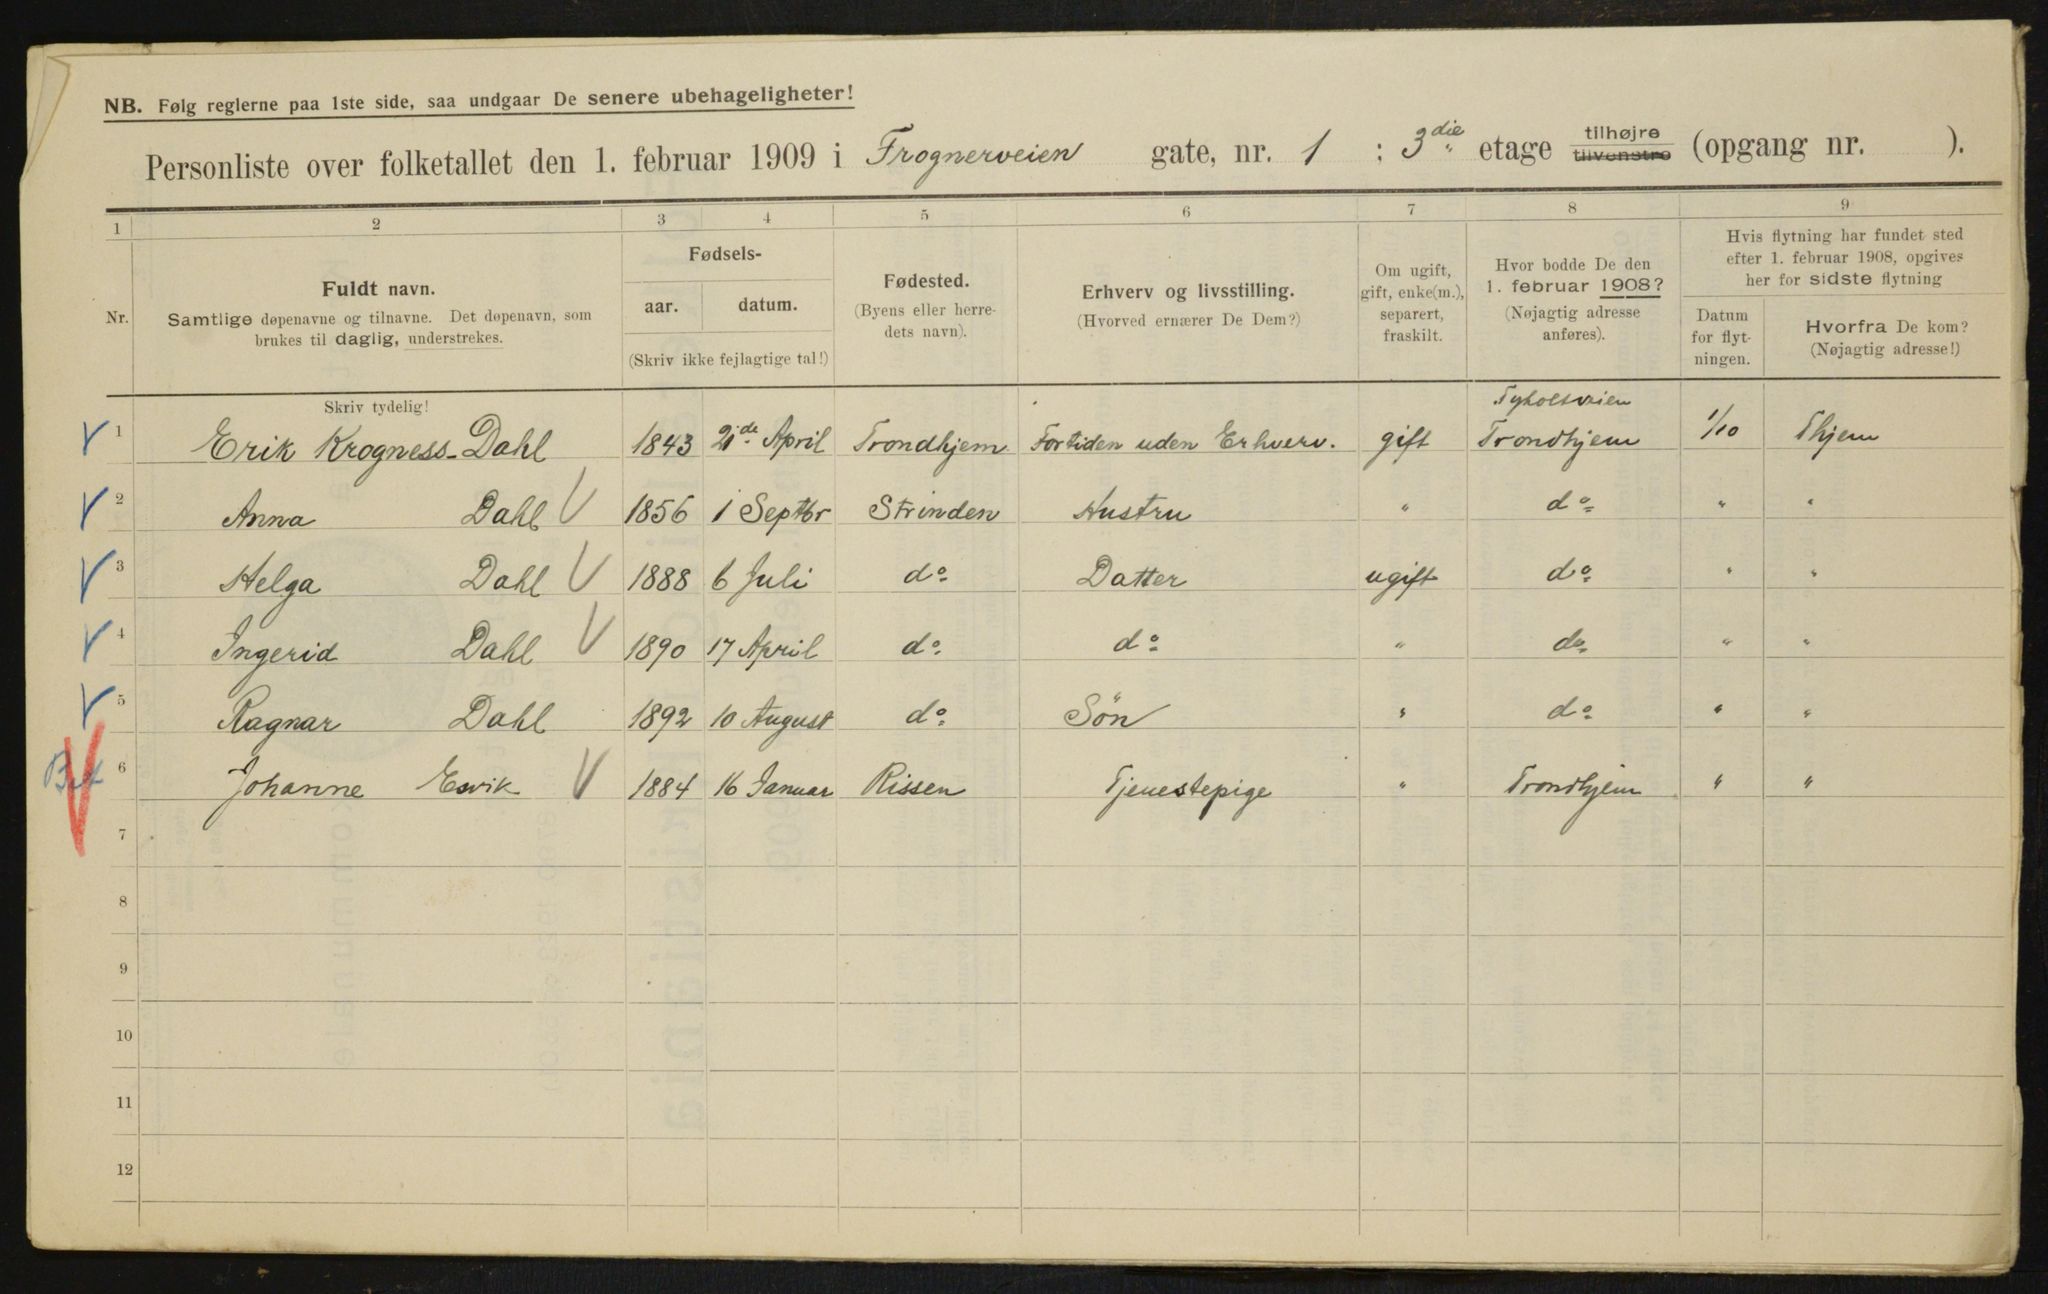 NB. Følg reglerne paa 1ste side, saa undgaar De senere ubehageligheter!
Personliste over folketallet den 1. februar 1909 i Frognerveien gate, nr. 1 : 3die etage tilhøjre tilvenstre (opgang nr. ).
1 2 3 4 5 6 7 8 9
Nr.
Fuldt navn.
Samtlige døpenavne og tilnavne. Det døpenavn, som
brukes til daglig, understrekes.
Fødsels-
aar. datum.
(Skriv ikke fejlagtige tal!)
Fødested.
(Byens eller herre-
dets navn).
Erhverv og livsstilling.
(Hvorved ernærer De Dem?)
Om ugift,
gift, enke(m.),
separert,
fraskilt.
Hvor bodde De den
1. februar 1908?
(Nøjagtig adresse
anføres).
Hvis flytning har fundet sted
efter 1. februar 1908, opgives
her for sidste flytning
Datum
for flyt-
ningen.
Hvorfra De kom?
(Nøjagtig adresse!)
Skriv tydelig!
Tyholtveien
1 Erik Krogness-Dahl 1843 April Trondhjem Fortiden uden Erhverv. gift Trondhjem 1/10 Thjem
2 Anna Dahl 1856 1 Septbr Strinden Hustru " do " "
3 Helga Dahl 1888 6 Juli do Datter ugift do " "
4 Ingerid Dahl 1890 17 April do do " do " "
5 Ragnar Dahl 1892 10 August do Søn " do " "
6 Johanne Esvik 1884 16 Januar Rissen Tjenestepige " Trondhjem " "
7
8
9
10
11
12